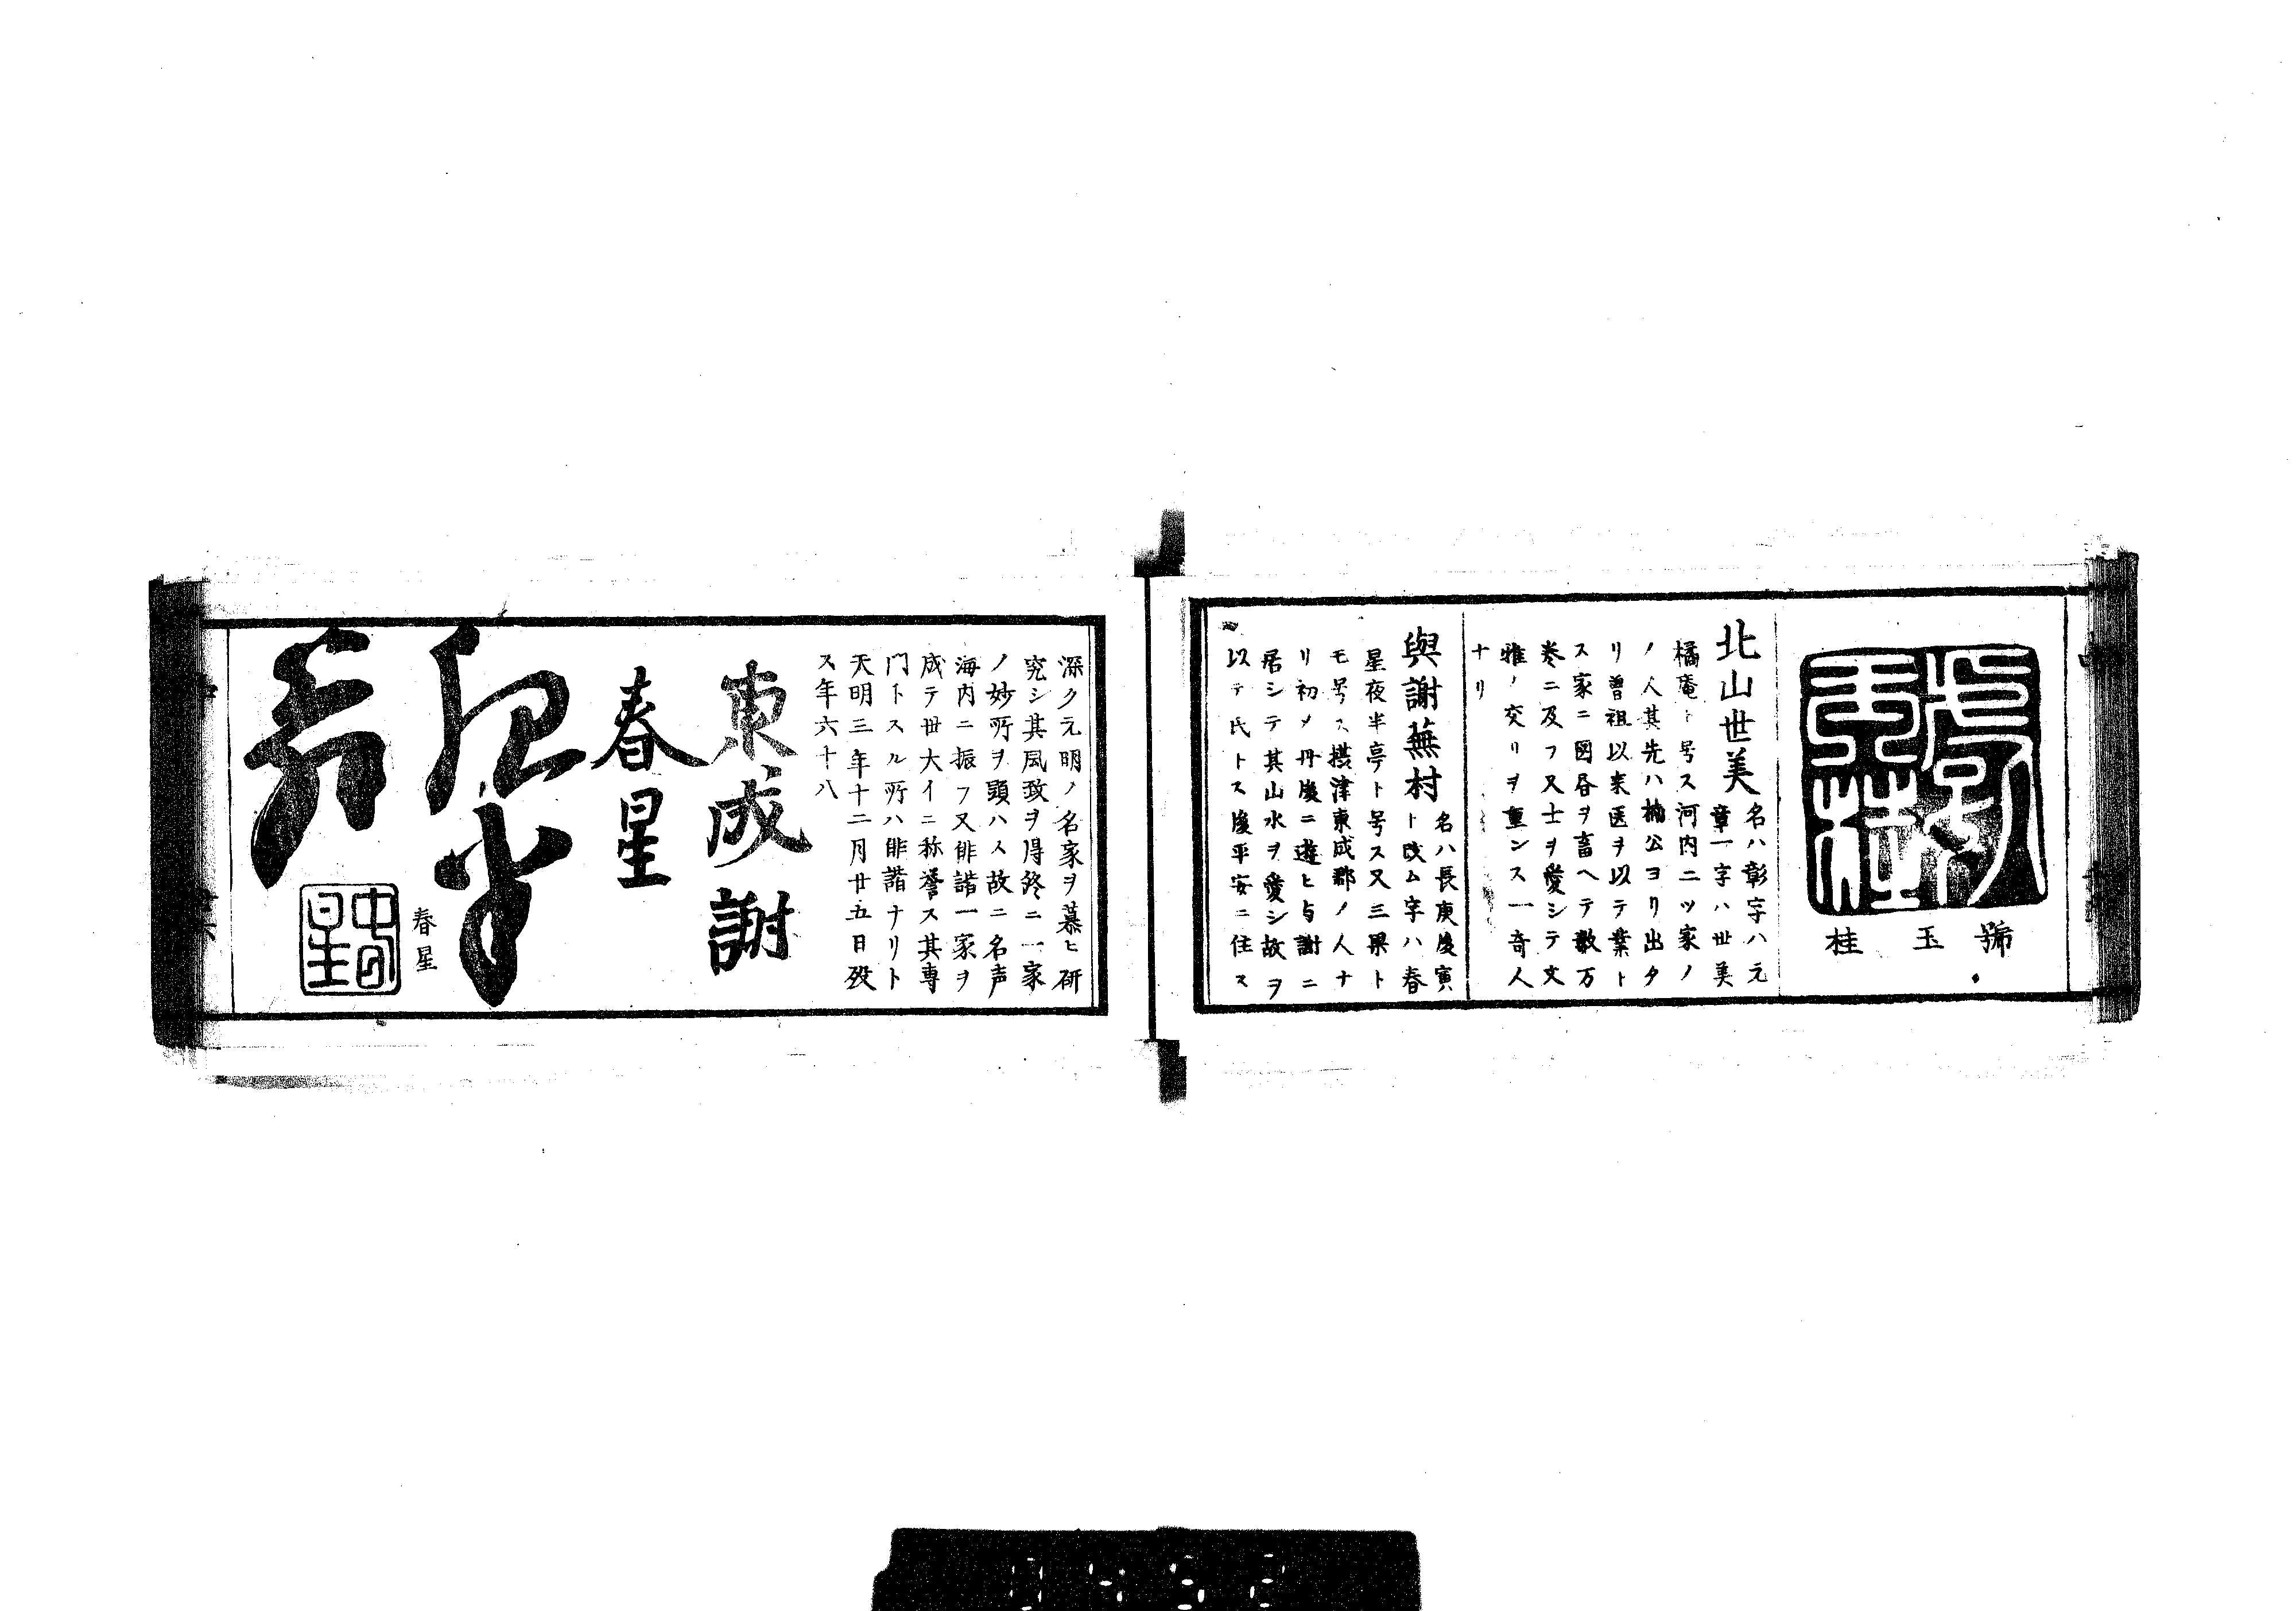 號玉桂
北山世美
名ハ彰字ハ元
章一字ハ世美
橘庵ト号ス河内二ツ家ノ
ノ人其先ハ楠公ヨリ出タ
リ曽祖以来医ヲ以テ業ト
ス家ニ図春ヲ畜ヘテ数万
巻ニ及フ又士ヲ愛シテ文
雅ノ交リヲ重ンス一奇人
ナリ
與謝蕪村
名ハ長庚後寅
ト改ム字ハ春
星夜半亭ト号ス又三果ト
モ号ス摂津東成郡ノ人ナ
リ初メ丹後ニ遊ヒ与謝ニ
居シテ其山水ヲ愛シ故ヲ
以テ氏トス後平安ニ住ス
深ク元明ノ名家ヲ慕ヒ研
究シ其風致ヲ得終ニ一家
ノ妙所ヲ顕ハス故ニ名声
海内ニ振フ又俳諧一家ヲ
成テ世大イニ称誉ス其専
門トスル所ハ俳諧ナリト
天明三年十二月廿五日歿
ス年六十八
東成謝
春星
夜半
春星
春星